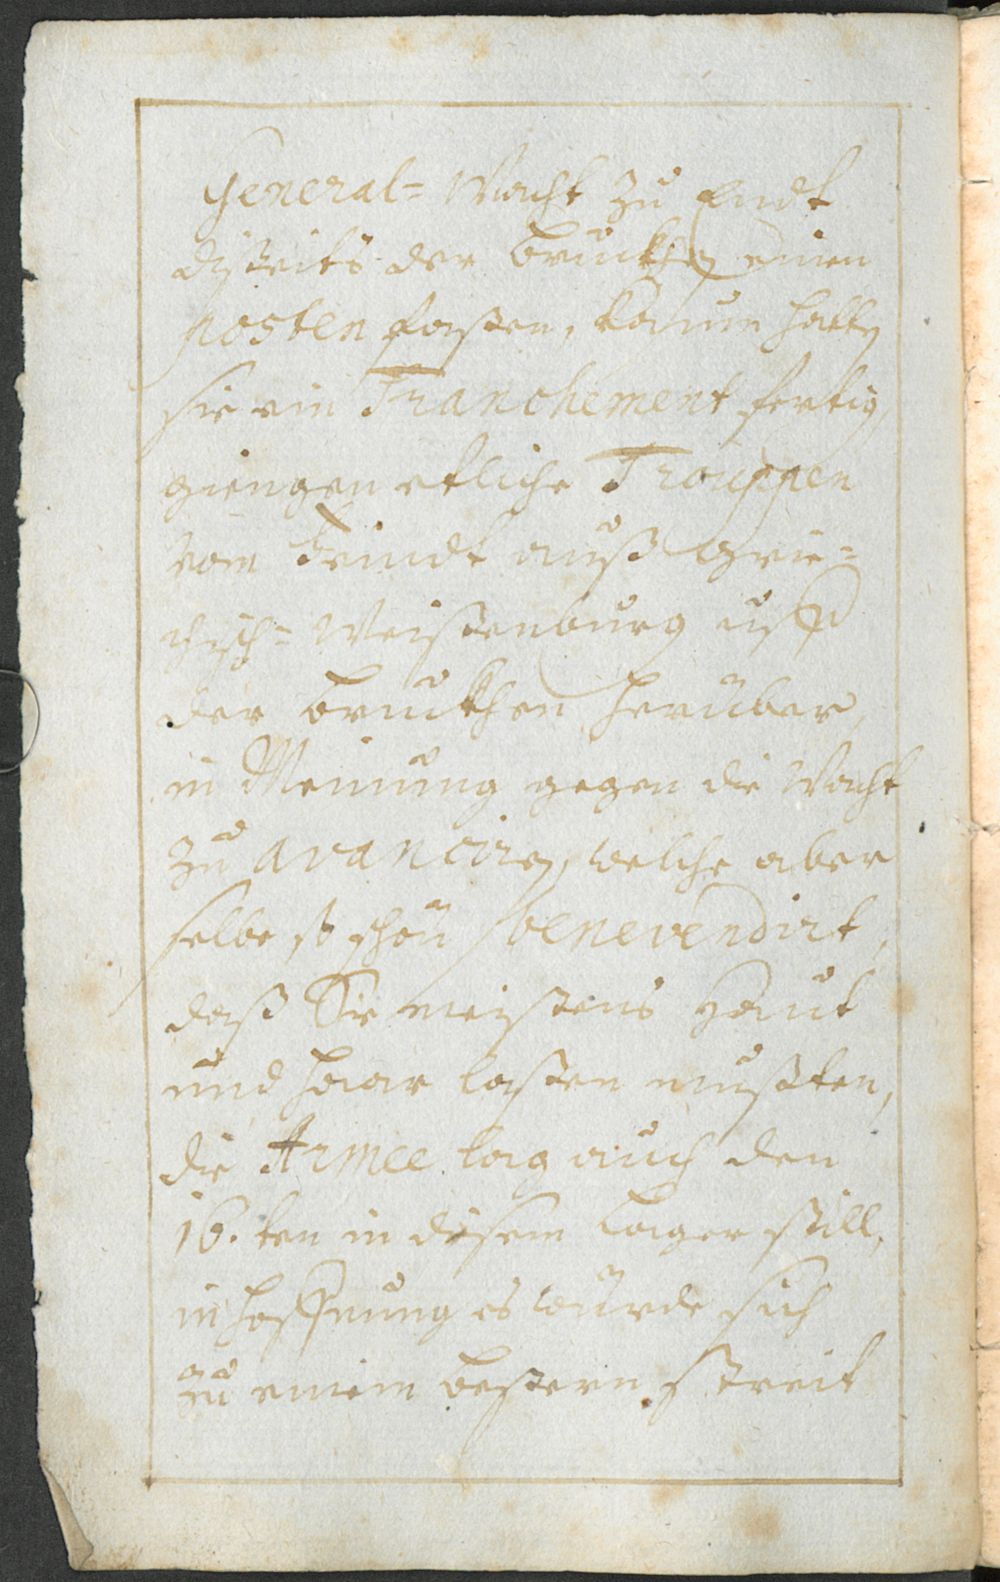 General= Wacht zu Endt
disseits der Brukhen einen
Posten fassen, kaum hatten
sie ein Tranchement fertig,
giengen etliche Trouppen
vom Feindt auß Grie=
chisch= Weissenburg auff
der Brukhen herüber,
in Meinung gegen die Wacht
zu avanciren, welche aber
selbe so schön benevendirt,
daß Sie meistens Haut
und Haar lassen mußten,
die Armee lag auch den
16.ten in disem Lager still,
in Hoffnung es würde sich
zu einem bessern Streit